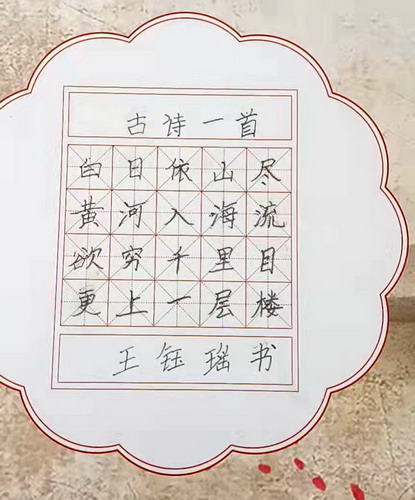 古诗一首
白日依山尽
黄河入海流
欲穷千里目
更上一层楼
王钰瑶书